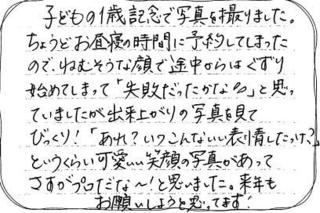 子どもの1歳記念で写真を撮りました。
ちょうどお昼寝の時間に予約してしまった
ので、ねむそうな顔で途中からはぐずり
始めてしまって「失敗だったかな〜」と思っ
ていましたが出来上がりの写真を見て
びっくり!「あれ?いつこんないい表情したっけ?」
というくらい可愛い笑顔の写真があって
さすがプロだな〜!と思いました。来年も
お願いしようと思ってます!